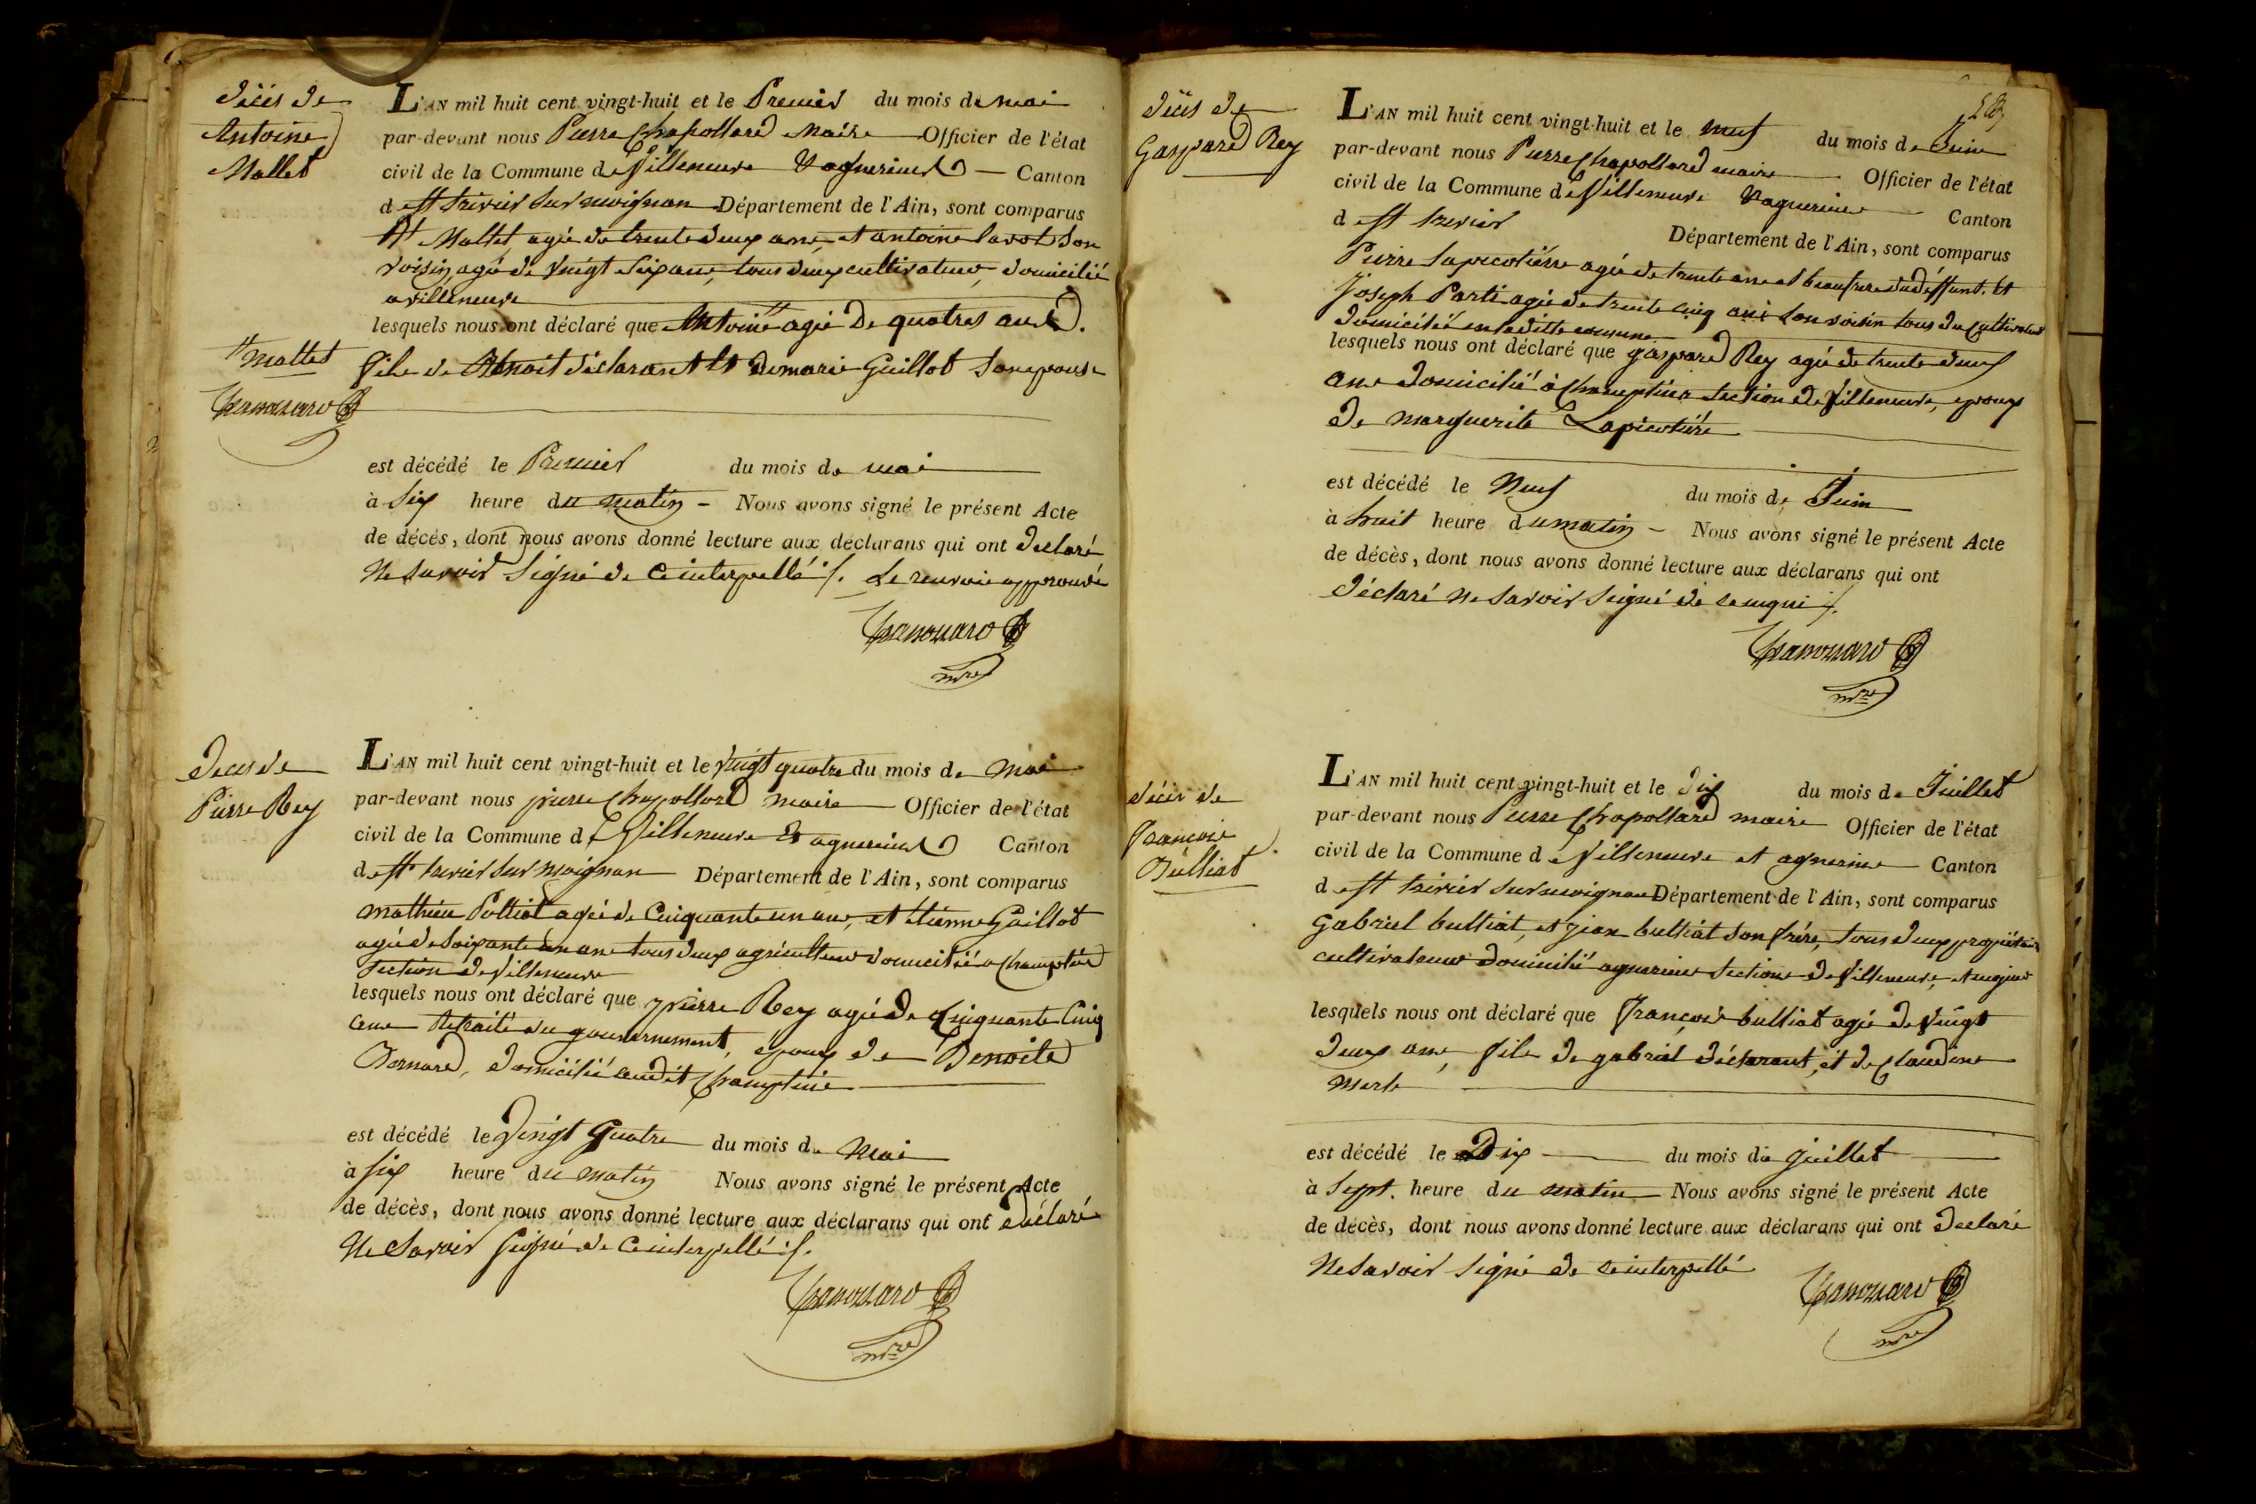 décès de
Antoine
Mallet
L'AN mil huit cent vingt-huit et le Premier du mois de mai
par-devant nous Pierre Chapollard Maire Officier de l'état
civil de la Commune de Villeneuve Canton
d st trivier sur moignan Département de l'Ain, sont comparus
Bt Mallet agée de trente deux ans et antoine son
voisin agé de vingt six ans, tous deux cultivateurs, domicilié
a villeneuve
lesquels nous ont déclaré que Antoine agé De quatres ans
tt mallet
fils de Benoit déclarant et De marie Guillot son epouse
est décédé le Premier du mois de mai
à six heure du matin Nous avons signé le présent Acte
de décès, dont nous avons donné lecture aux déclarans qui ont declaré
Ne savoir signé de ce interpellé ./. Le renvoie approuvé
mre
Deces de
Pierre Rey
L'AN mil huit cent vingt-huit et le vingt quatre du mois de Mai
par-devant nous pierre Chapollard maire Officier de l'état
civil de la Commune de Villeneuve & agnereins Canton
d st trivier sur moignan Département de l'Ain, sont comparus
Mathieu Polliat agée de Cinquante un ans, et étienne Gaillot
agé de soixante un ans tous deux agriculteurs domicilié a Champtein
section de Villeneuve
lesquels nous ont déclaré que pierre Rey agé de Cinquante Cinq
ans Retraité du gouvernement, epoux de Benoite
domicilié audit Champtein
est décédé le vingt Quatre du mois de Mai
à six heure du matin Nous avons signé le présent Acte
de décès, dont nous avons donné lecture aux déclarans qui ont déclaré
Ne Savoir signé de ce interpellé ./.
mre
décès de
Gaspard Rey
L'AN mil huit cent vingt-huit et le neuf du mois de Juin
par-devant nous Pierre Chapollard maire Officier de l'état
civil de la Commune de Villeneuve Canton
d st trivier Département de l'Ain, sont comparus
Pierre Lapicotière agée de trente ans et beaufrere du déffunt. Et
Joseph Parti agée de trente cinq ans son voisin tous deux cultivateurs
domicilié en laditte commune
lesquels nous ont déclaré que gaspard Rey agé de trente deux
ans domicilié à Champtein section de Villeneuve, epoux
De marguerite Lapicotière
est décédé le Neuf du mois de Juin
à huit heure du matin Nous avons signé le présent Acte
de décès, dont nous avons donné lecture aux déclarans qui ont
déclaré Ne savoir signé de ce ./.
mre
décès de
François
Bulliat
L'AN mil huit cent vingt-huit et le dix du mois de Juillet
par-devant nous Pierre Chapollard maire Officier de l'état
civil de la Commune d e Villeneuve et agnereins Canton
d st trivier sur moignan Département de l'Ain, sont comparus
Gabriel bulliat, et jean bulliat son frére, tous deux propriétaire
cultivateurs domicilié agnereins section de Villeneuve,
lesquels nous ont déclaré que François bulliat agé de vingt
deux ans, fils de gabriel déclarant, et de Claudine
Merle
est décédé le Dix du mois de juillet
à sept. heure du matin Nous avons signé le présent Acte
de décès, dont nous avons donné lecture aux déclarans qui ont declaré
Ne Savoir signé de ce interpellé
mre